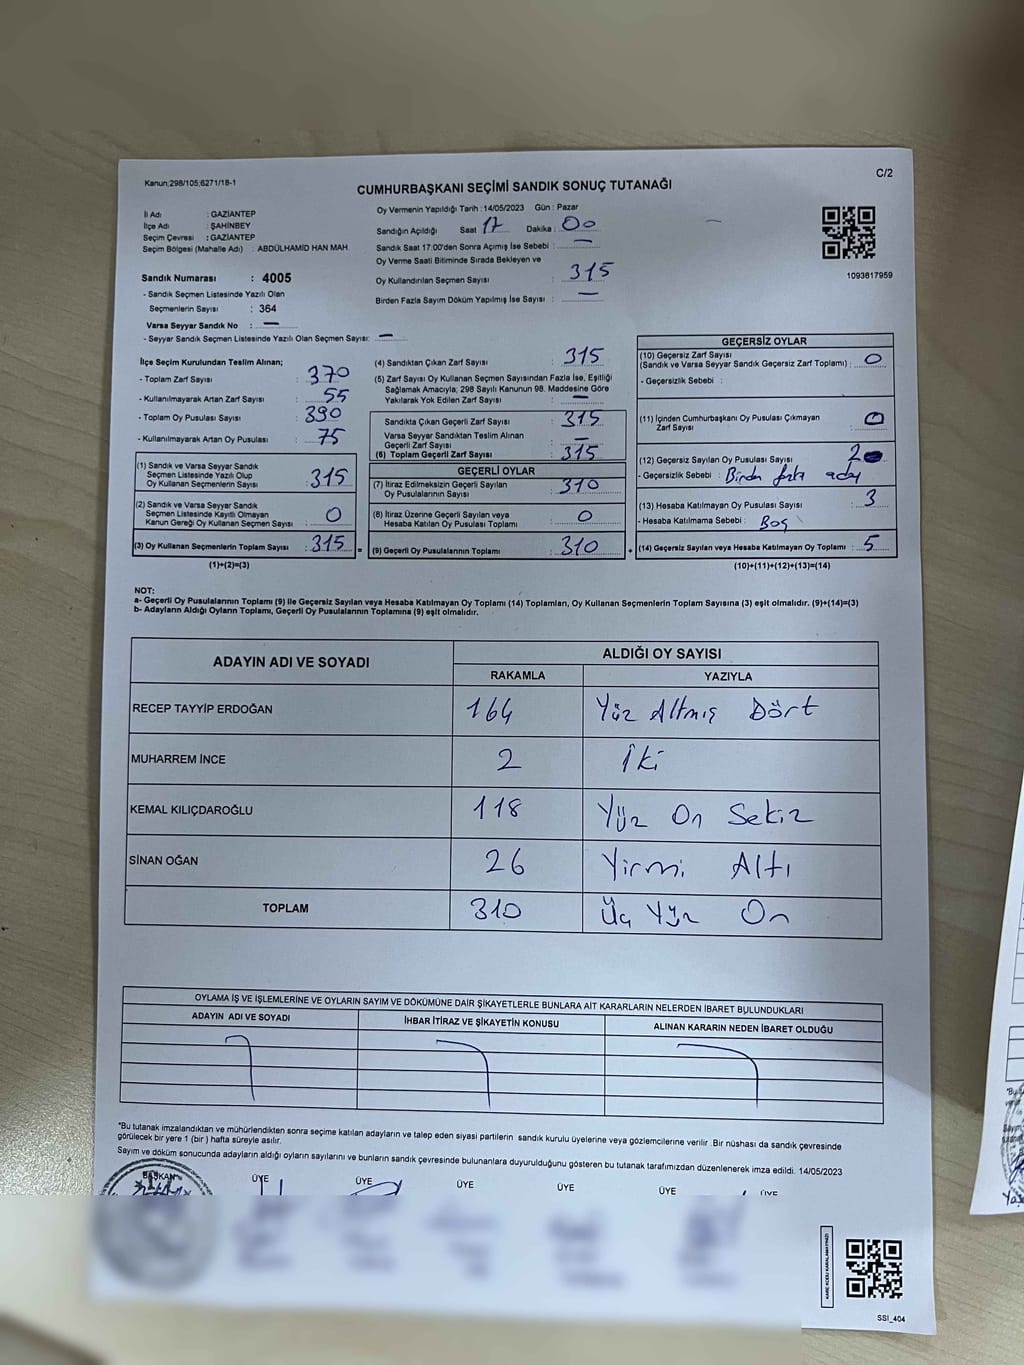 Kanun;298/105;6271/18-1
C/2
CUMHURBAŞKANI SEÇİMİ SANDIK SONUÇ TUTANAĞI
İl Adı : GAZİANTEP
İlçe Adı : ŞAHİNBEY
Seçim Çevresi : GAZİANTEP
Seçim Bölgesi (Mahalle Adı) : ABDÜLHAMİD HAN MAH.
Sandık Numarası : 4005
- Sandık Seçmen Listesinde Yazılı Olan
Seçmenlerin Sayısı : 364
Varsa Seyyar Sandık No : —
- Seyyar Sandık Seçmen Listesinde Yazılı Olan Seçmen Sayısı: —
Oy Vermenin Yapıldığı Tarih : 14/05/2023 Gün : Pazar
Sandığın Açıldığı Saat 17 Dakika : 00
Sandık Saat 17:00'den Sonra Açımış İse Sebebi : —
Oy Verme Saati Bitiminde Sırada Bekleyen ve
Oy Kullandırılan Seçmen Sayısı : 315
Birden Fazla Sayım Döküm Yapılmış İse Sayısı : —
1093817959
İlçe Seçim Kurulundan Teslim Alınan;
- Toplam Zarf Sayısı : 370
- Kullanılmayarak Artan Zarf Sayısı : 55
- Toplam Oy Pusulası Sayısı : 390
- Kullanılmayarak Artan Oy Pusulası : 75
(1) Sandık ve Varsa Seyyar Sandık
Seçmen Listesinde Yazılı Olup
Oy Kullanan Seçmenlerin Sayısı : 315
(2) Sandık ve Varsa Seyyar Sandık
Seçmen Listesinde Kayıtlı Olmayan
Kanun Gereği Oy Kullanan Seçmen Sayısı : 0
(3) Oy Kullanan Seçmenlerin Toplam Sayısı : 315 =
(1)+(2)=(3)
(4) Sandıktan Çıkan Zarf Sayısı : 315
(5) Zarf Sayısı Oy Kullanan Seçmen Sayısından Fazla İse, Eşitliği
Sağlamak Amacıyla; 298 Sayılı Kanunun 98. Maddesine Göre
Yakılarak Yok Edilen Zarf Sayısı : —
Sandıkta Çıkan Geçerli Zarf Sayısı : 315
Varsa Seyyar Sandıktan Teslim Alınan
Geçerli Zarf Sayısı : —
(6) Toplam Geçerli Zarf Sayısı : 315
GEÇERLİ OYLAR
(7) İtiraz Edilmeksizin Geçerli Sayılan
Oy Pusulalarının Sayısı : 310
(8) İtiraz Üzerine Geçerli Sayılan veya
Hesaba Katılan Oy Pusulası Toplamı : 0
(9) Geçerli Oy Pusulalarının Toplamı : 310 +
GEÇERSİZ OYLAR
(10) Geçersiz Zarf Sayısı
(Sandık ve Varsa Seyyar Sandık Geçersiz Zarf Toplamı) : 0
- Geçersizlik Sebebi :
(11) İçinden Cumhurbaşkanı Oy Pusulası Çıkmayan
Zarf Sayısı : 0
(12) Geçersiz Sayılan Oy Pusulası Sayısı : 2
- Geçersizlik Sebebi : Birden fazla aday
(13) Hesaba Katılmayan Oy Pusulası Sayısı : 3
- Hesaba Katılmama Sebebi : Boş
(14) Geçersiz Sayılan veya Hesaba Katılmayan Oy Toplamı : 5
(10)+(11)+(12)+(13)=(14)
NOT:
a- Geçerli Oy Pusulalarının Toplamı (9) ile Geçersiz Sayılan veya Hesaba Katılmayan Oy Toplamı (14) Toplamları, Oy Kullanan Seçmenlerin Toplam Sayısına (3) eşit olmalıdır. (9)+(14)=(3)
b- Adayların Aldığı Oyların Toplamı, Geçerli Oy Pusulalarının Toplamına (9) eşit olmalıdır.
ADAYIN ADI VE SOYADI ALDIĞI OY SAYISI
RAKAMLA YAZIYLA
RECEP TAYYİP ERDOĞAN 164 Yüz Altmış Dört
MUHARREM İNCE 2 İki
KEMAL KILIÇDAROĞLU 118 Yüz On Sekiz
SİNAN OĞAN 26 Yirmi Altı
TOPLAM 310 Üç Yüz On
OYLAMA İŞ VE İŞLEMLERİNE VE OYLARIN SAYIM VE DÖKÜMÜNE DAİR ŞİKAYETLERLE BUNLARA AİT KARARLARIN NELERDEN İBARET BULUNDUKLARI
ADAYIN ADI VE SOYADI İHBAR İTİRAZ VE ŞİKAYETİN KONUSU ALINAN KARARIN NEDEN İBARET OLDUĞU
"Bu tutanak imzalandıktan ve mühürlendikten sonra seçime katılan adayların ve talep eden siyasi partilerin sandık kurulu üyelerine veya gözlemcilerine verilir .Bir nüshası da sandık çevresinde
görülecek bir yere 1 (bir ) hafta süreyle asılır.
Sayım ve döküm sonucunda adayların aldığı oyların sayılarını ve bunların sandık çevresinde bulunanlara duyurulduğunu gösteren bu tutanak tarafımızdan düzenlenerek imza edildi. 14/05/2023
BAŞKAN ÜYE ÜYE ÜYE ÜYE ÜYE ÜYE
KARE KODU KARALAMAYINIZ!
SSI_404